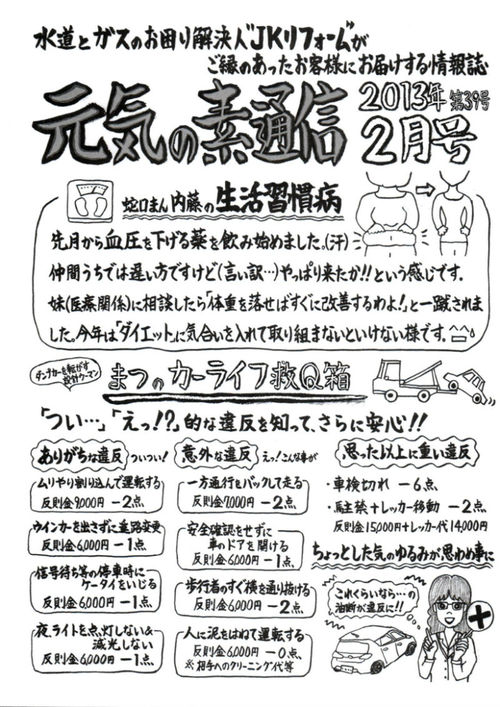 水道とガスのお困り解決人"JKリフォーム"が
ご縁のあったお客様にお届けする情報誌
元気の素通信
2013年 第39号
2月号
蛇口まん内藤の生活習慣病
先月から血圧を下げる薬を飲み始めました。(汗)
仲間うちでは遅い方ですけど(言い訳…)やっぱり来たか!!という感じです。
妹(医療関係)に相談したら「体重を落せばすぐに改善するわよ!」と一蹴されま
した。今年は「ダイエット」に気合いを入れて取り組まないといけない様です。
まつのカーライフ救Q箱
「つい…」「えっ!?」的な違反を知って、さらに安心!!
ありがちな違反 ついつい!
ムリやり割り込んで運転する
反則金9,000円 −2点
ウインカーを出さずに進路変更
反則金6,000円 −1点
信号待ち等の停車時に
ケータイをいじる
反則金6,000円 −1点
夜、ライトを点灯しない&
減光しない
反則金6,000円 −1点
意外な違反 えっ!こんな事が
一方通行をバックして走る
反則金7,000円 −2点
安全確認をせずに
車のドアを開ける
反則金6,000円 −1点
歩行者のすぐ横を通り抜ける
反則金6,000円 −2点
人に泥をはねて運転する
反則金6,000円 −0点
※相手へのクリーニング代等
思った以上に重い違反
・車検切れ −6点
・駐主禁+レッカー移動 −2点
反則金15,000円+レッカー代14,000円
ちょっとした気のゆるみが思わぬ事に
これくらいなら…の
油断が違反に!!